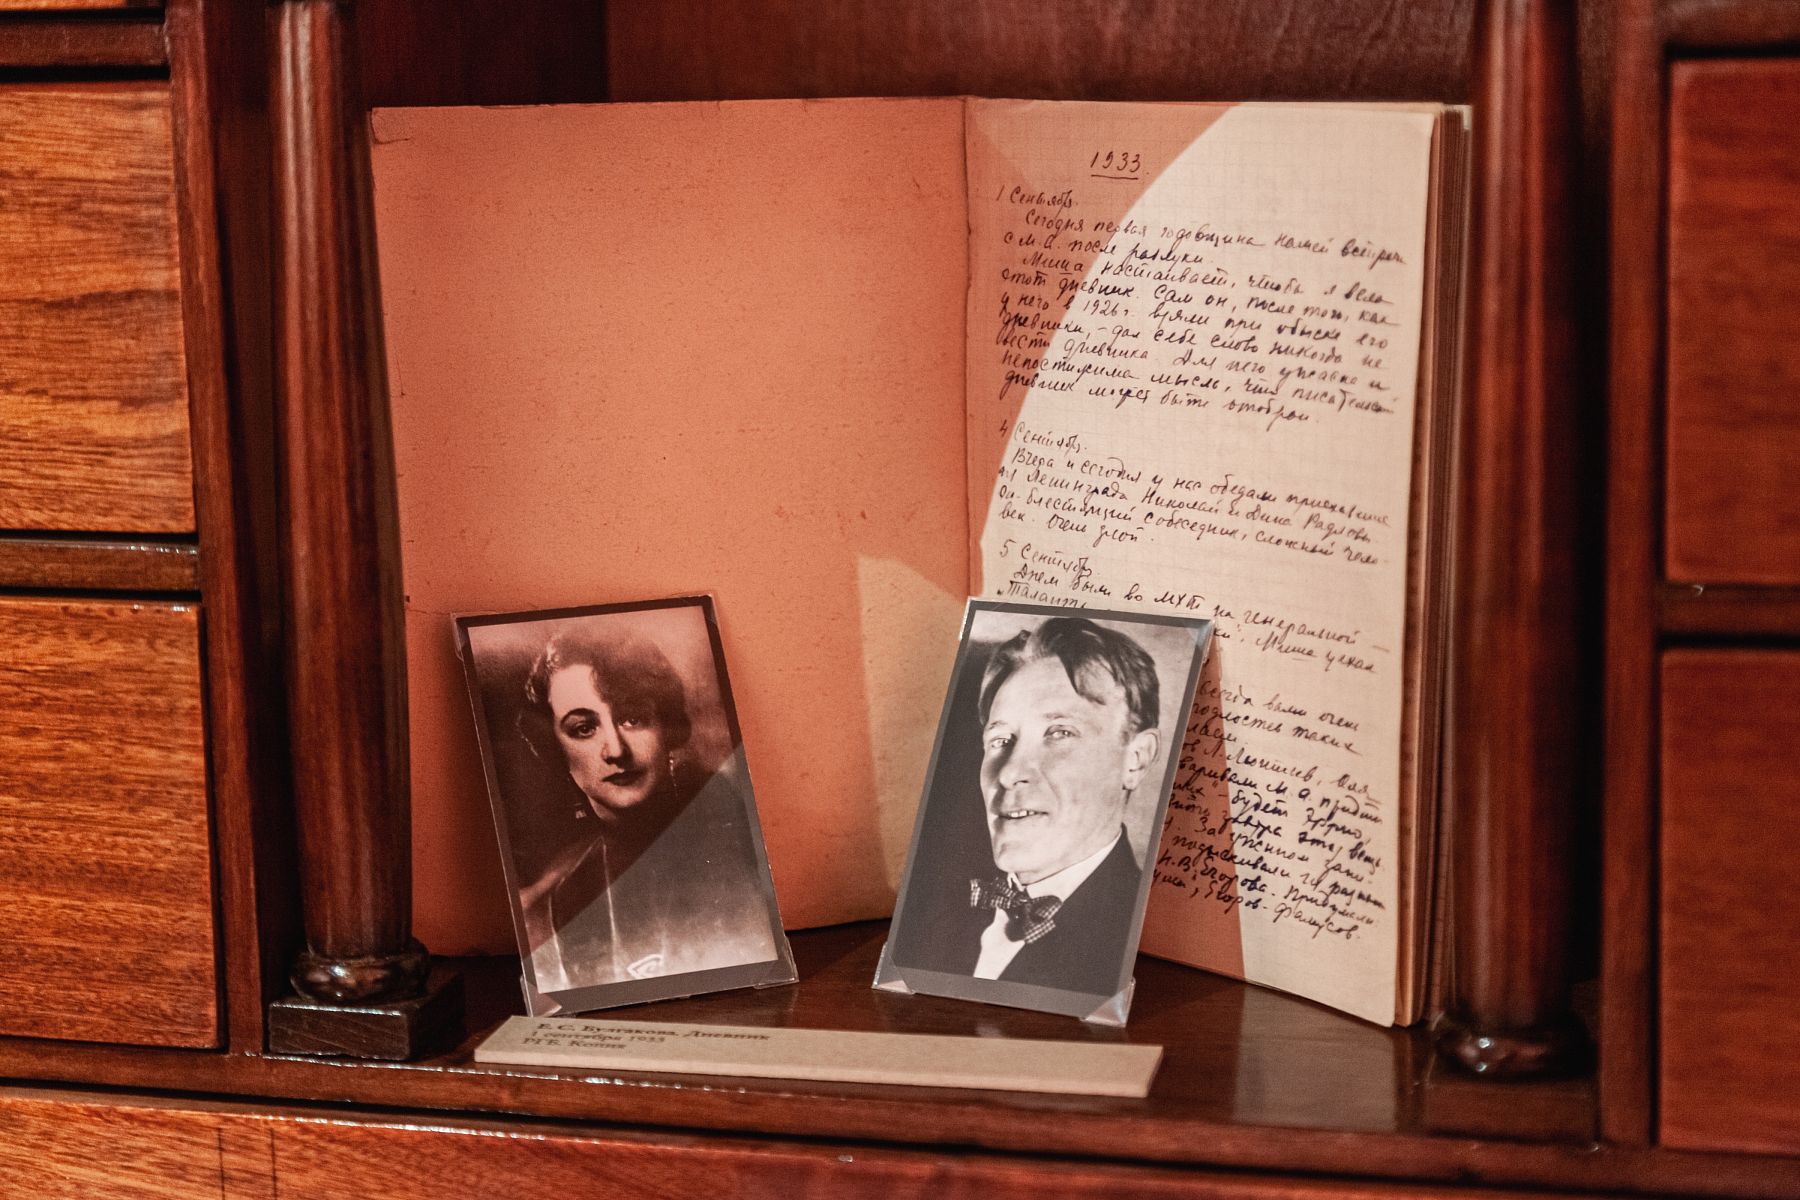 1933.
1 Сентября.
Сегодня первая годовщина нашей встречи
с М.А. после разлуки.
Миша настаивает, чтобы я вела
этот дневник. Сам он, после того, как
у него в 1926 г. взяли при обыске его
дневники, – дал себе слово никогда не
вести дневника. Для него ужасна и
непостижима мысль, что писательский
дневник может быть отобран.
4 Сентября.
Вчера и сегодня у нас обедали приехавшие
из Ленинграда Николай и Дина Радловы.
Он – блестящий собеседник, сложный чело-
век. Очень злой.
5 Сентября
Днем были во МХТ на генеральной –
„Таланты
ки". Миша уехал
всегда вами очень
подлостей таких
лаем.
ов Л. Лютиев,
варивали М.А. придти
– будет Эррио,
завтра эта вещь
За ужином зани-
подыскивали
Н.В. Егорова. Придумали
Егоров – Фамусов.
Е. С. Булгакова. Дневник
1 сентября 1933
РГБ. Копия